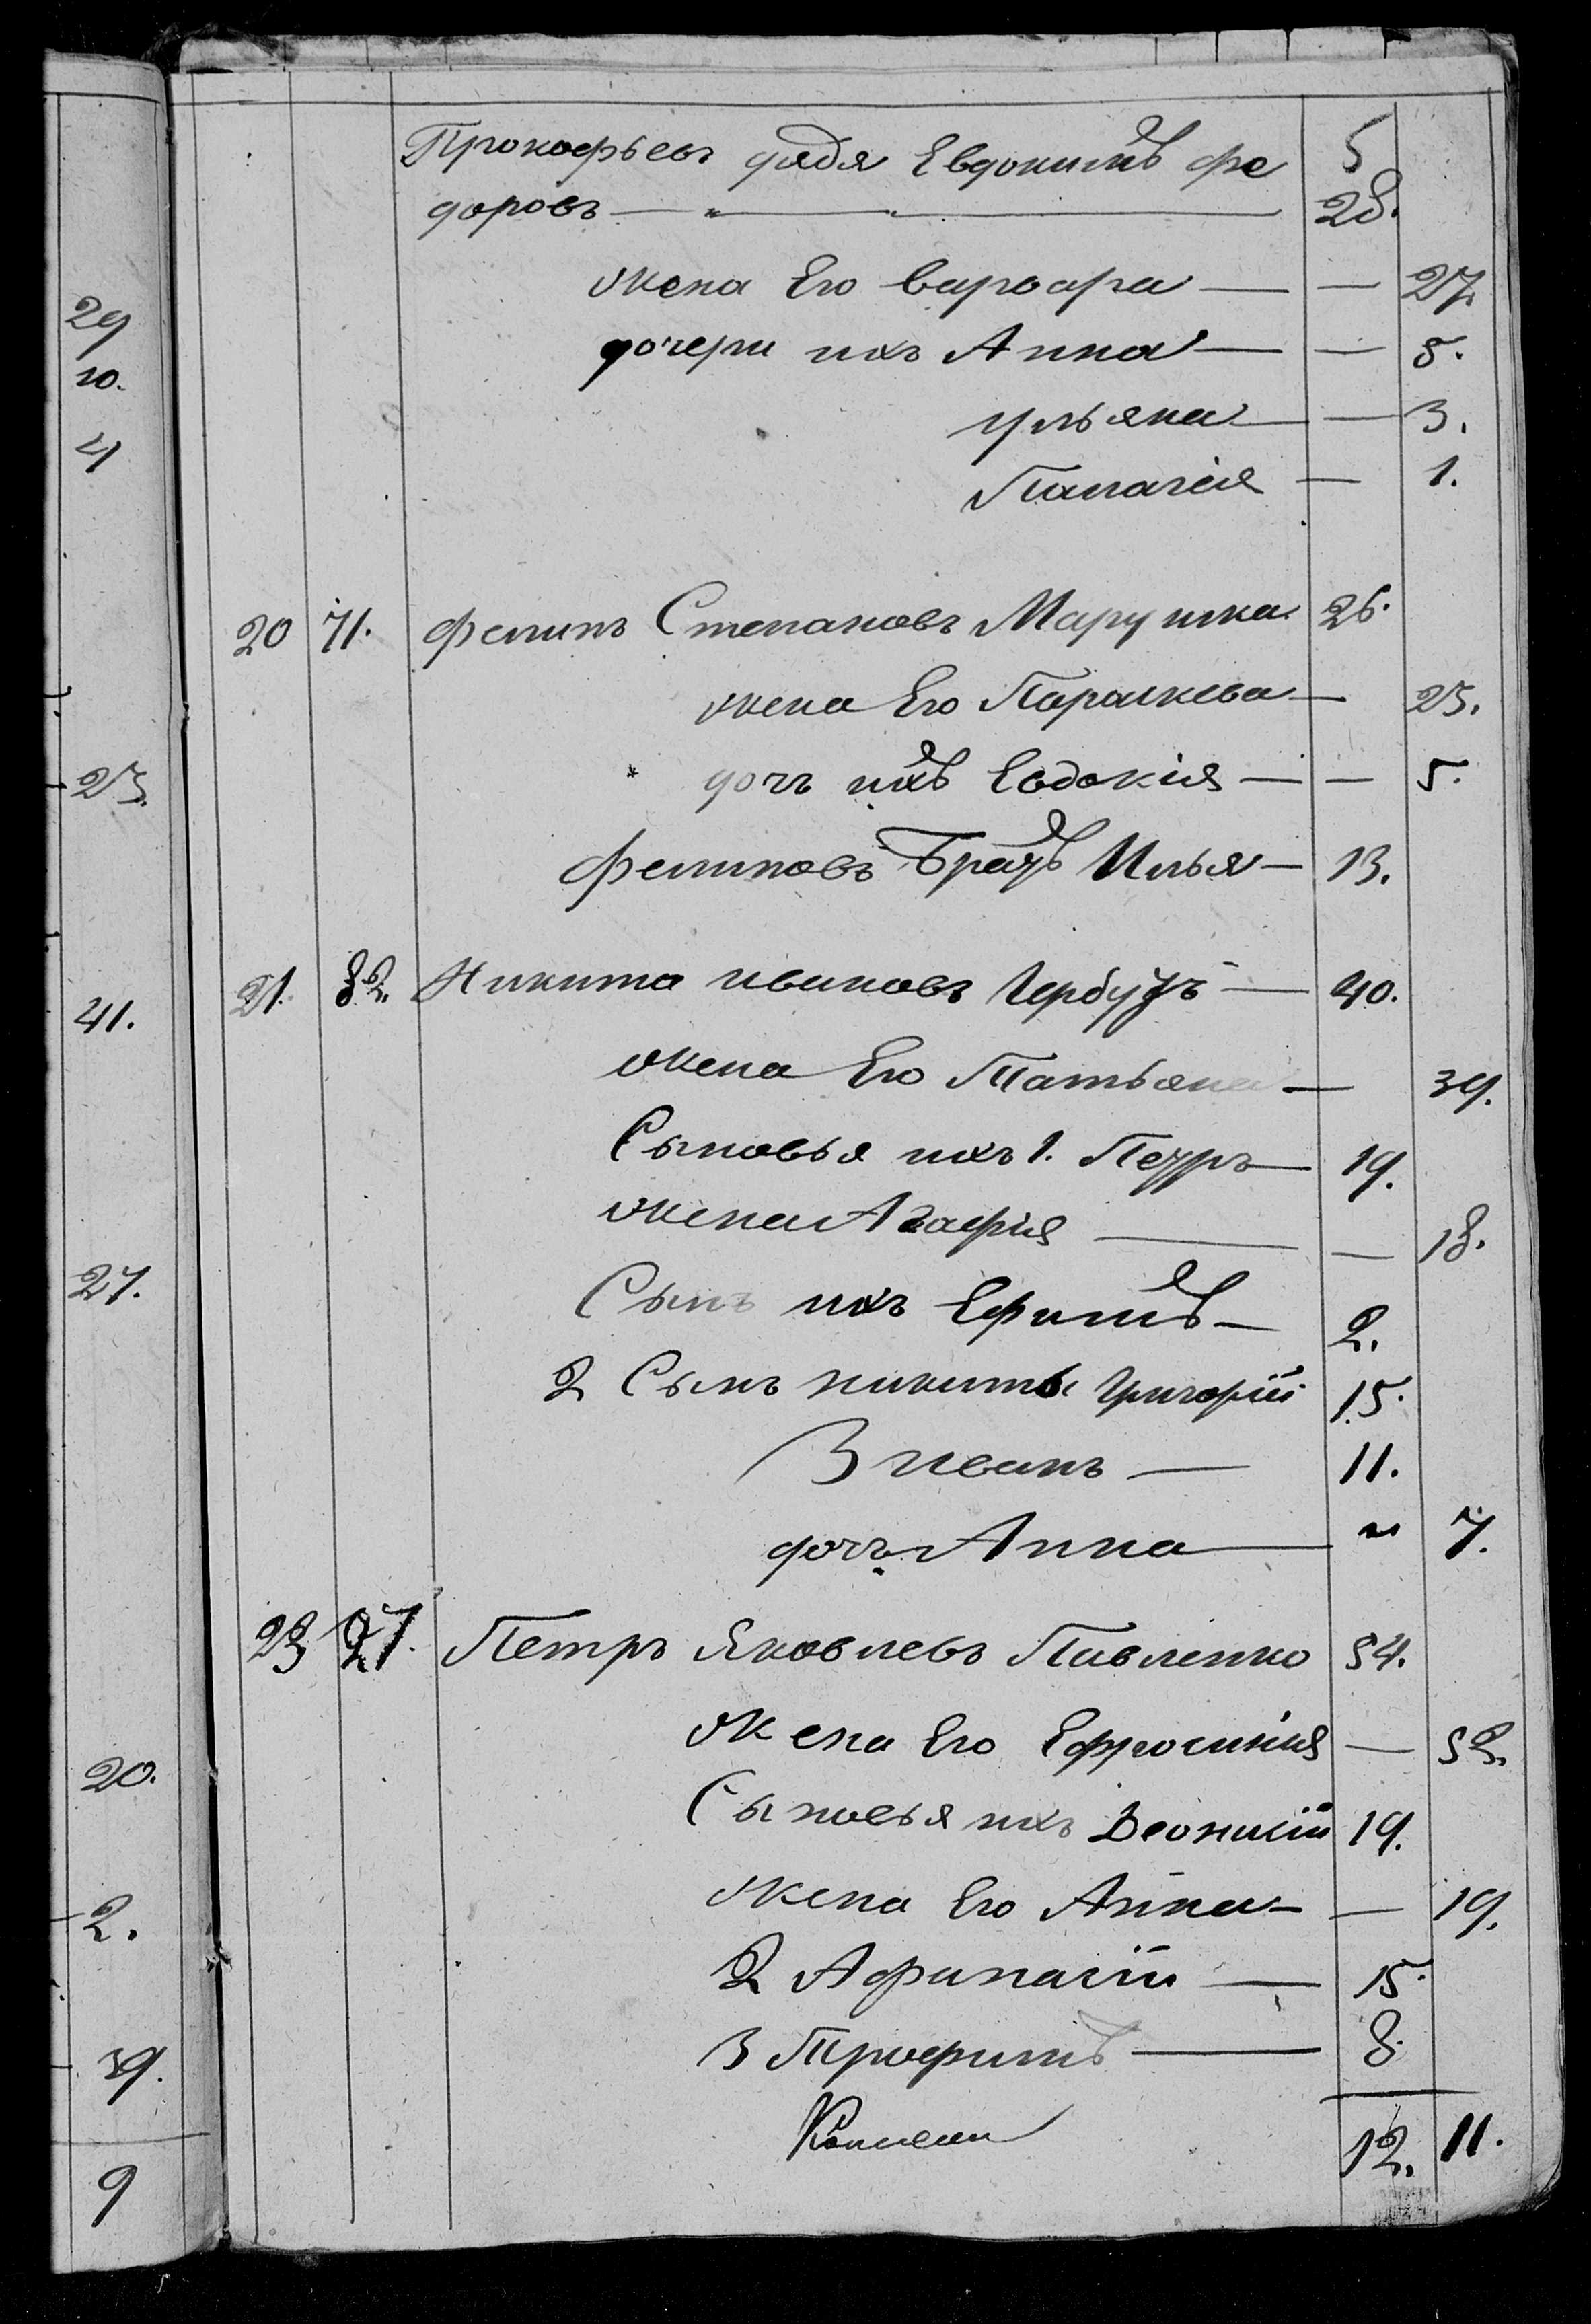 Прокофьевъ дядя Евдокимъ фе 5
доровъ — " — " — 28.
жена Его варвара — — 27.
дочери ихъ Анна — — 5.
ульяна — — 3.
Палагія — 1.
20 71. Филипъ Степановъ Марушка 26.
жена Его Параскева — 25.
дочь ихъ Евдокія — — 5.
Филиповъ Братъ Илья — 13.
21. 82. Никита ивановъ Чербутъ — 40.
жена Его Татьяна — 39.
Сыновья ихъ 1. Петръ — 19.
жена Агафія — — 18.
Сынъ ихъ Ефимъ — 2.
2 Сынъ никиты Григорій 15.
3 иванъ — 11.
дочь Анна — " 7.
Петръ Яковлевъ Павленко 54.
жена Его Ефросинія —
Сыновья ихъ Деонисій 19.
жена Его Анна — — 19.
2 Афанасій — 15.
3 Трофимъ — 8.
12. 11.
29
10.
4
23.
41.
27.
20.
2.
39.
9